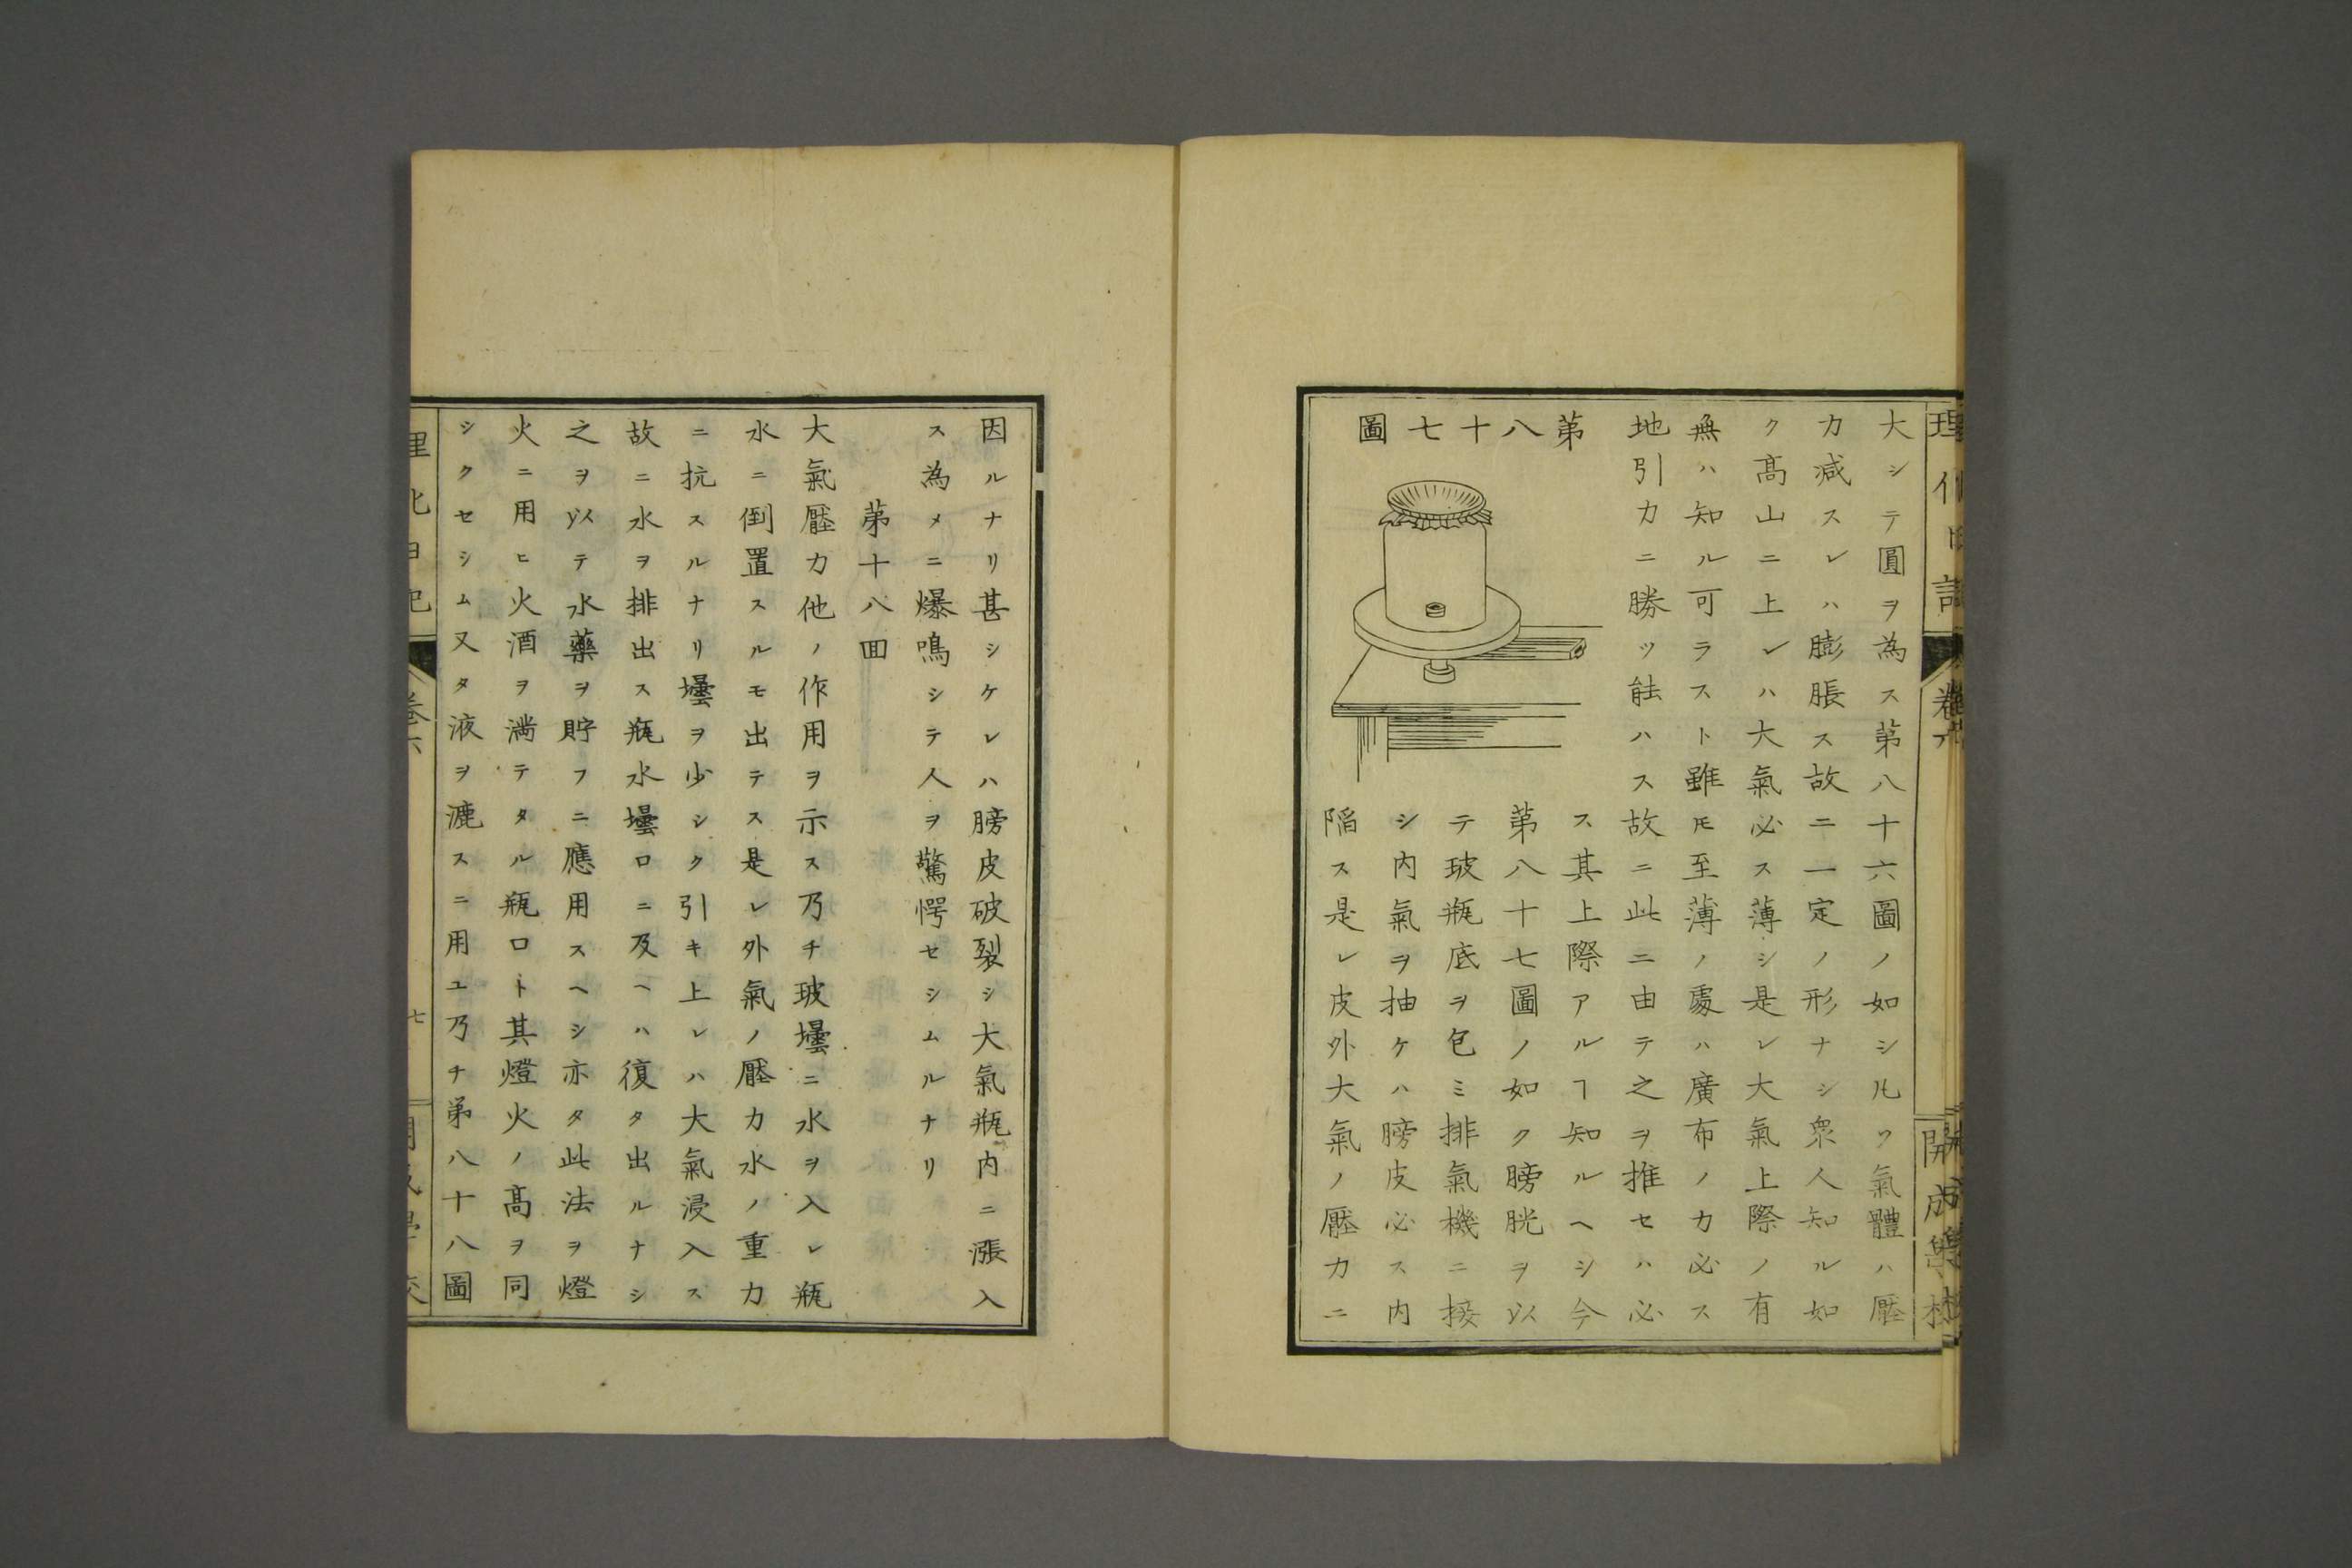 大シテ圓ヲ為ス第八十六圖ノ如シ凡ソ氣體ハ壓
力減スレハ膨脹ス故ニ一定ノ形ナシ衆人知ル如
ク髙山ニ上レハ大氣必ス薄シ是レ大氣上際ノ有
無ハ知ル可ラスト雖𪜈至薄ノ處ハ廣布ノ力必ス
地引力ニ勝ツ能ハス故ニ此ニ由テ之ヲ推セハ必
ス其上際アルヿ知ルヘシ今
第八十七圖ノ如ク膀胱ヲ以
テ玻瓶底ヲ包ミ排氣機ニ接
シ内氣ヲ抽ケハ膀皮必ス内
陷ス是レ皮外大氣ノ壓力ニ
第八十七圖
理化日記
開成學校
因ルナリ甚シケレハ膀皮破裂シ大氣瓶内ニ漲入
ス為メニ爆鳴シテ人ヲ驚愕セシムルナリ
第十八回
大氣壓力他ノ作用ヲ示ス乃チ玻壜ニ水ヲ入レ瓶
水ニ倒置スルモ出テス是レ外氣ノ壓力水ノ重力
ニ抗スルナリ壜ヲ少シク引キ上レハ大氣浸入ス
故ニ水ヲ排出ス瓶水壜口ニ及ヘハ復タ出ルナシ
之ヲ以テ水藥ヲ貯フニ應用スヘシ亦タ此法ヲ燈
火ニ用ヒ火酒ヲ満テタル瓶口ト其燈火ノ髙ヲ同
シクセシム又タ液ヲ漉スニ用ユ乃チ弟八十八圖
理化日記
卷六
七
開成學校